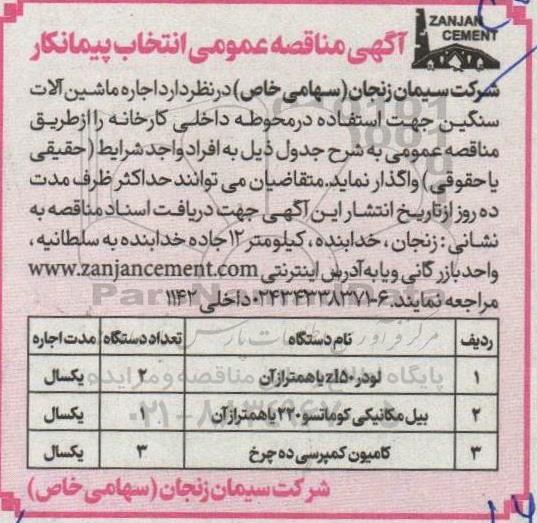 ZANJAN
CEMENT
آگهی مناقصه عمومی انتخاب پیمانکار
شرکت سیمان زنجان (سهامی خاص) در نظر دارد اجاره ماشین آلات
سنگین جهت استفاده در محوطه داخلی کارخانه را از طریق
مناقصه عمومی به شرح جدول ذیل به افراد واجد شرایط (حقیقی
یا حقوقی) واگذار نماید. متقاضیان می توانند حداکثر ظرف مدت
ده روز از تاریخ انتشار این آگهی جهت دریافت اسناد مناقصه به
نشانی : زنجان ، خدابنده ، کیلومتر ۱۲ جاده خدابنده به سلطانیه ،
واحد بازرگانی و یا به آدرس اینترنتی www.zanjancement.com
مراجعه نمایند. ۶-۰۲۴۳۴۳۳۸۳۷۱ داخلی ۱۱۴۲
ردیف نام دستگاه تعداد دستگاه مدت اجاره
۱ لودر zl۵۰ یا همتراز آن ۲ یکسال
۲ بیل مکانیکی کوماتسو ۲۲۰ یا همتراز آن ۱ یکسال
۳ کامیون کمپرسی ده چرخ ۳ یکسال
شرکت سیمان زنجان (سهامی خاص)